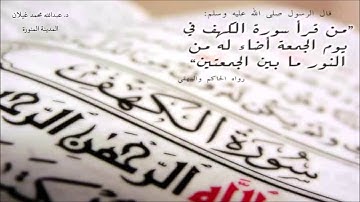 د. عبدالله محمد غيلان
المدينة المنورة
قال الرسول صلى الله عليه وسلم:
"من قرأ سورة الكهف في
يوم الجمعة أضاء له من
النور ما بين الجمعتين"
رواه الحاكم والبيهقي
سُورَةُ الكَهْفِ
الله الرحمن الرحيم